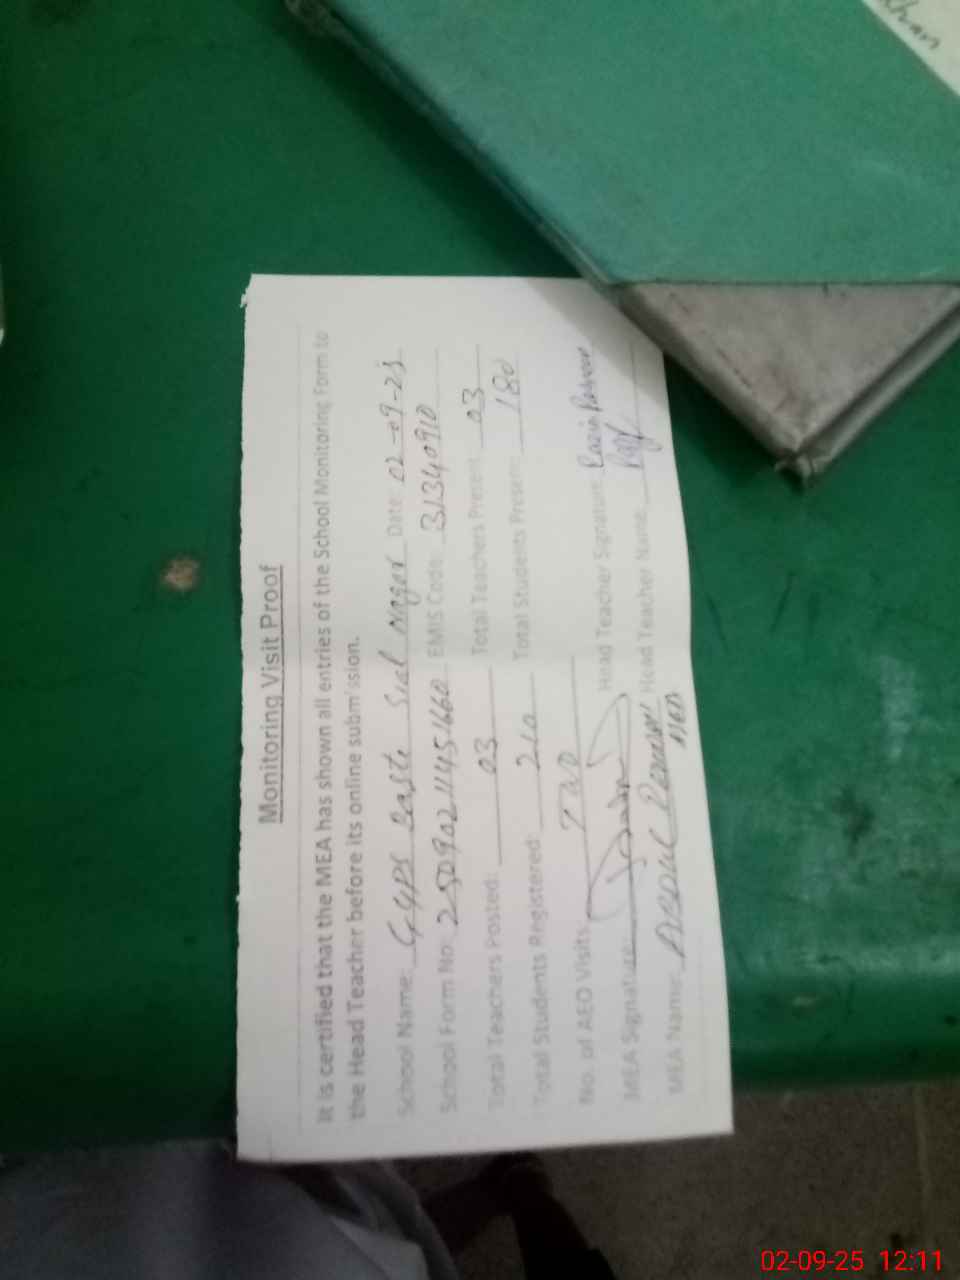 Monitoring Visit Proof
It is certified that the MEA has shown all entries of the School Monitoring Form to
the Head Teacher before its online submission.
School Name: GGPS Baste Sial Nagar Date: 02-09-25
School Form No: 250902114516660 EMIS Code: 31340910
Total Teachers Posted: 03 Total Teachers Present: 03
Total Students Registered: 210 Total Students Present: 180
No. of AEO Visits:
MEA Signature: Head Teacher Signature: Razia Parveen
MEA Name: Head Teacher Name:
02-09-25 12:11